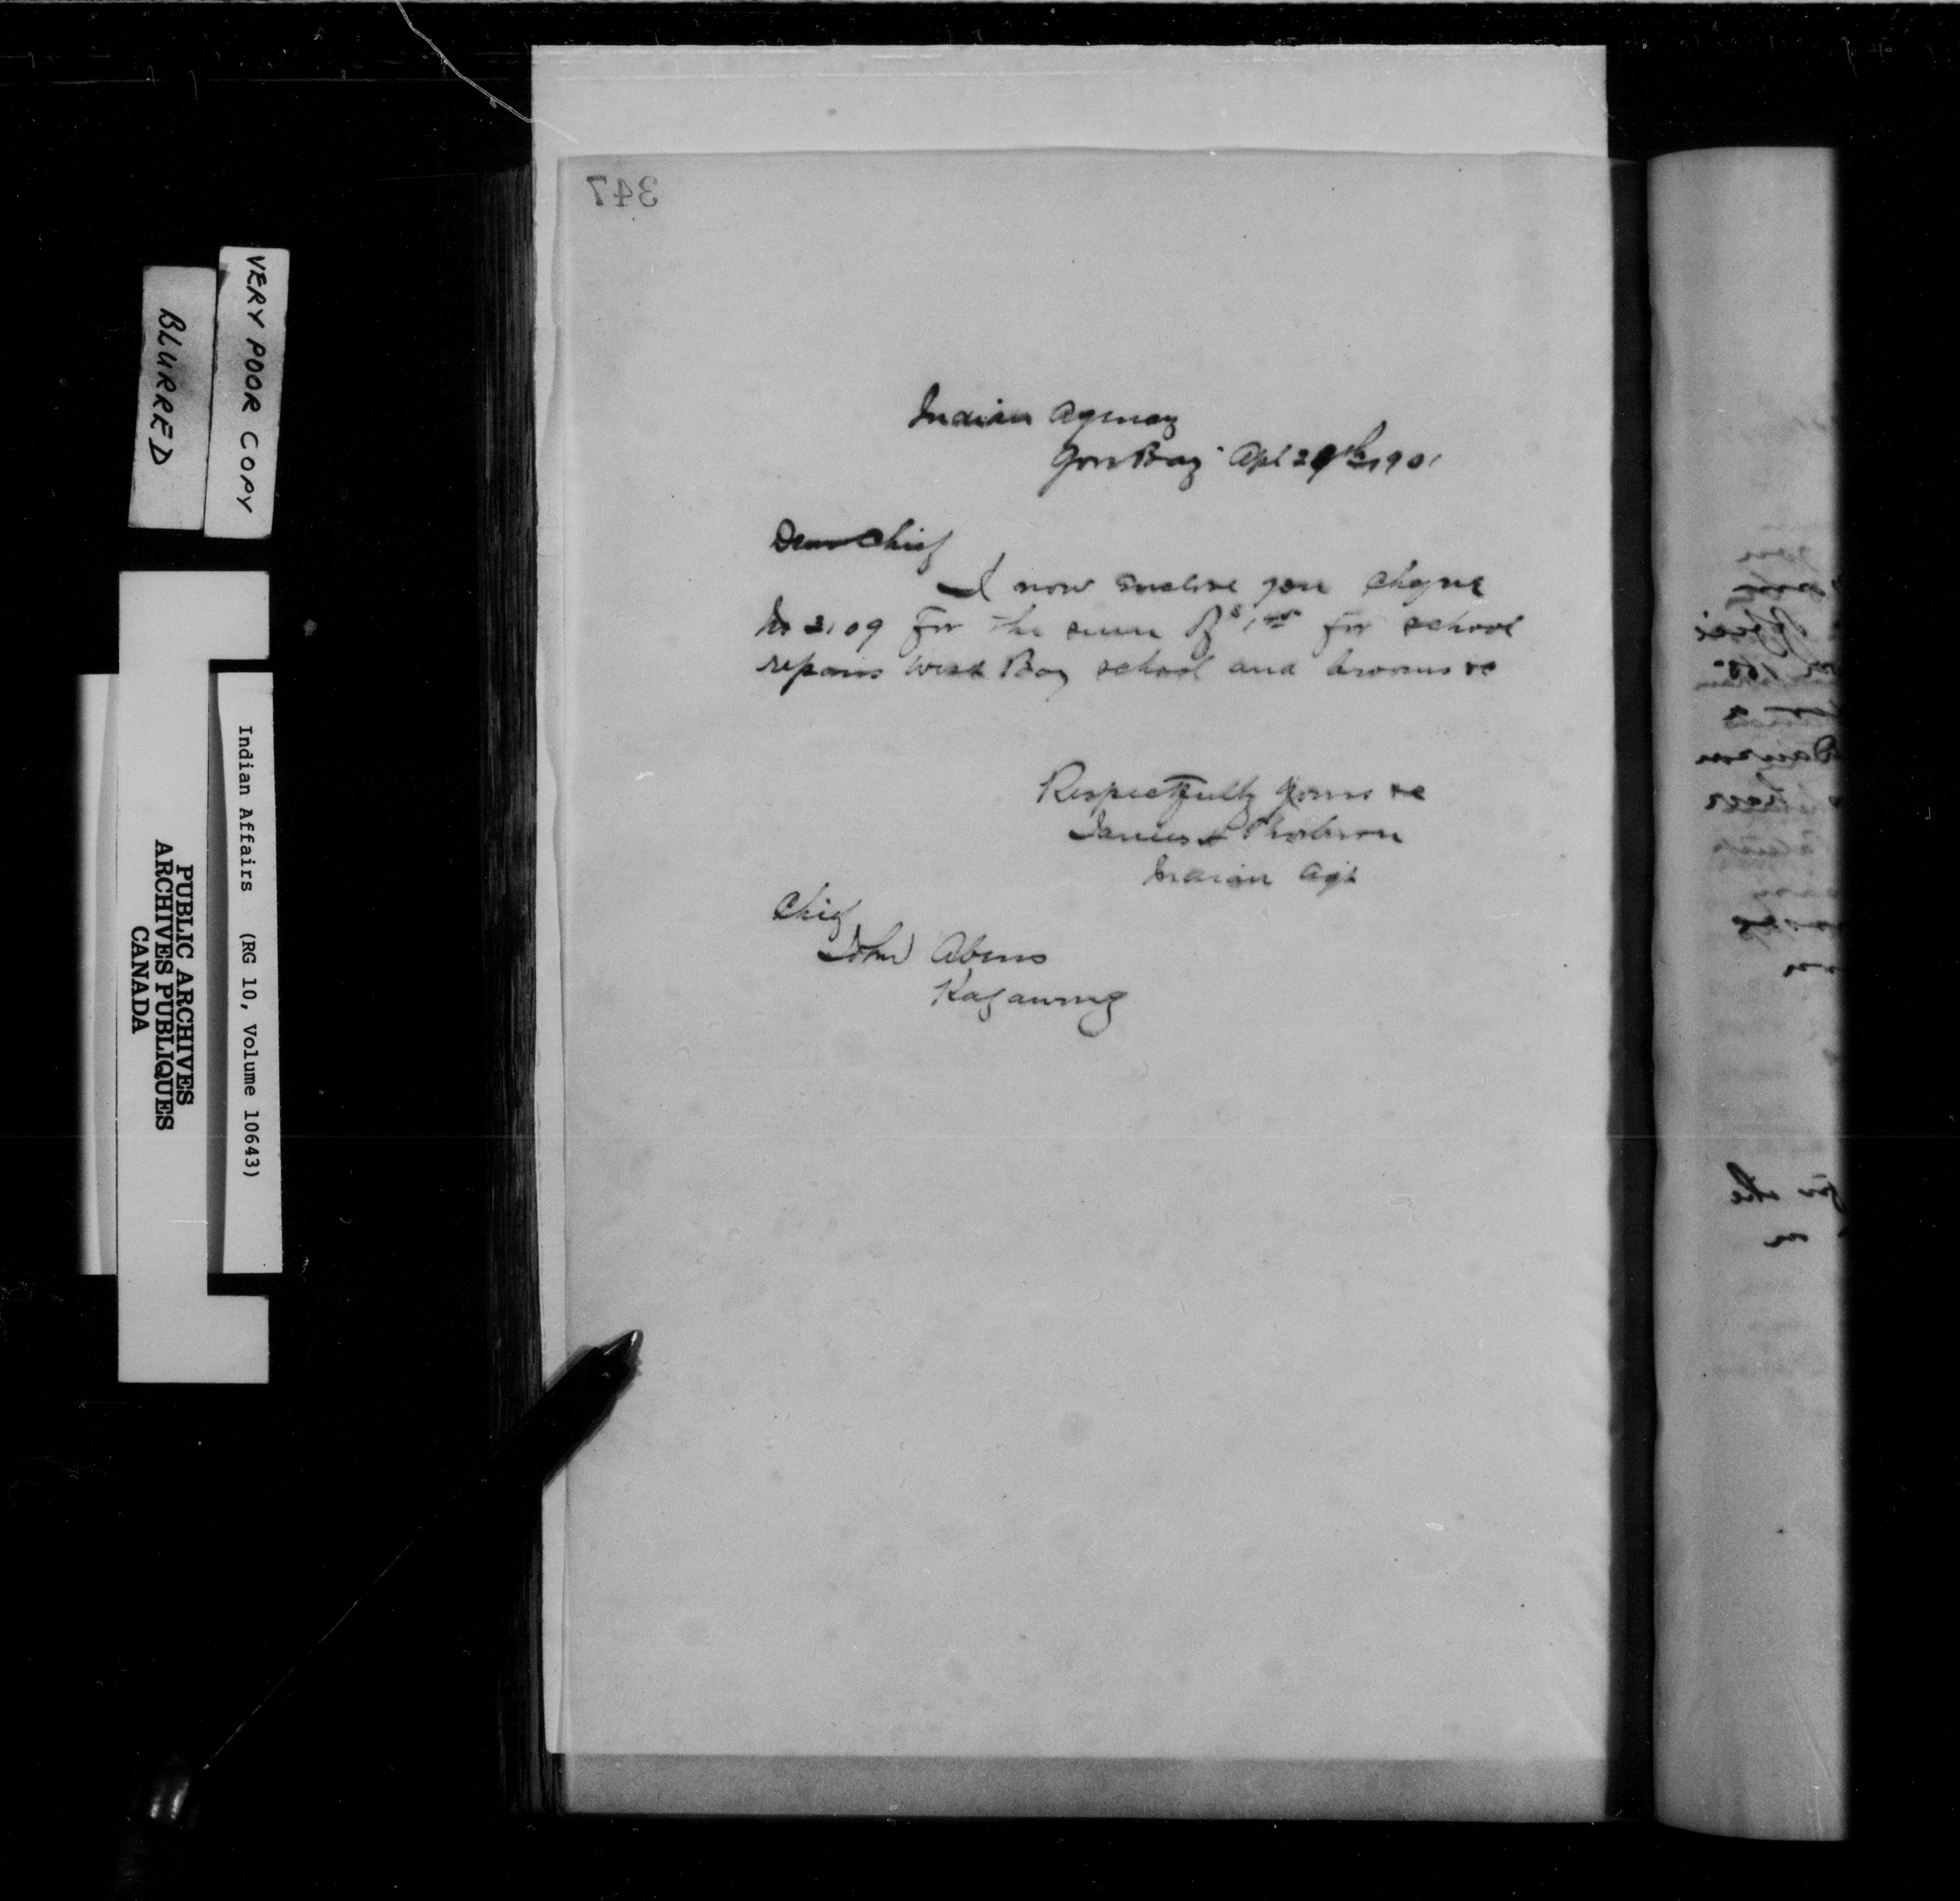 347
Indian Agency
Gore Bay Apl 29th 1901
Dear Chief
I now enclose you cheque
No 3109 for the sum of $ for school
repairs West Bay school and brooms &c
Respectfully yours &c
James
Indian Agt
Chief
John Abens
Kagawong
VERY POOR COPY
BLURRED
Indian Affairs (RG 10, Volume 10643)
PUBLIC ARCHIVES
ARCHIVES PUBLIQUES
CANADA
for the